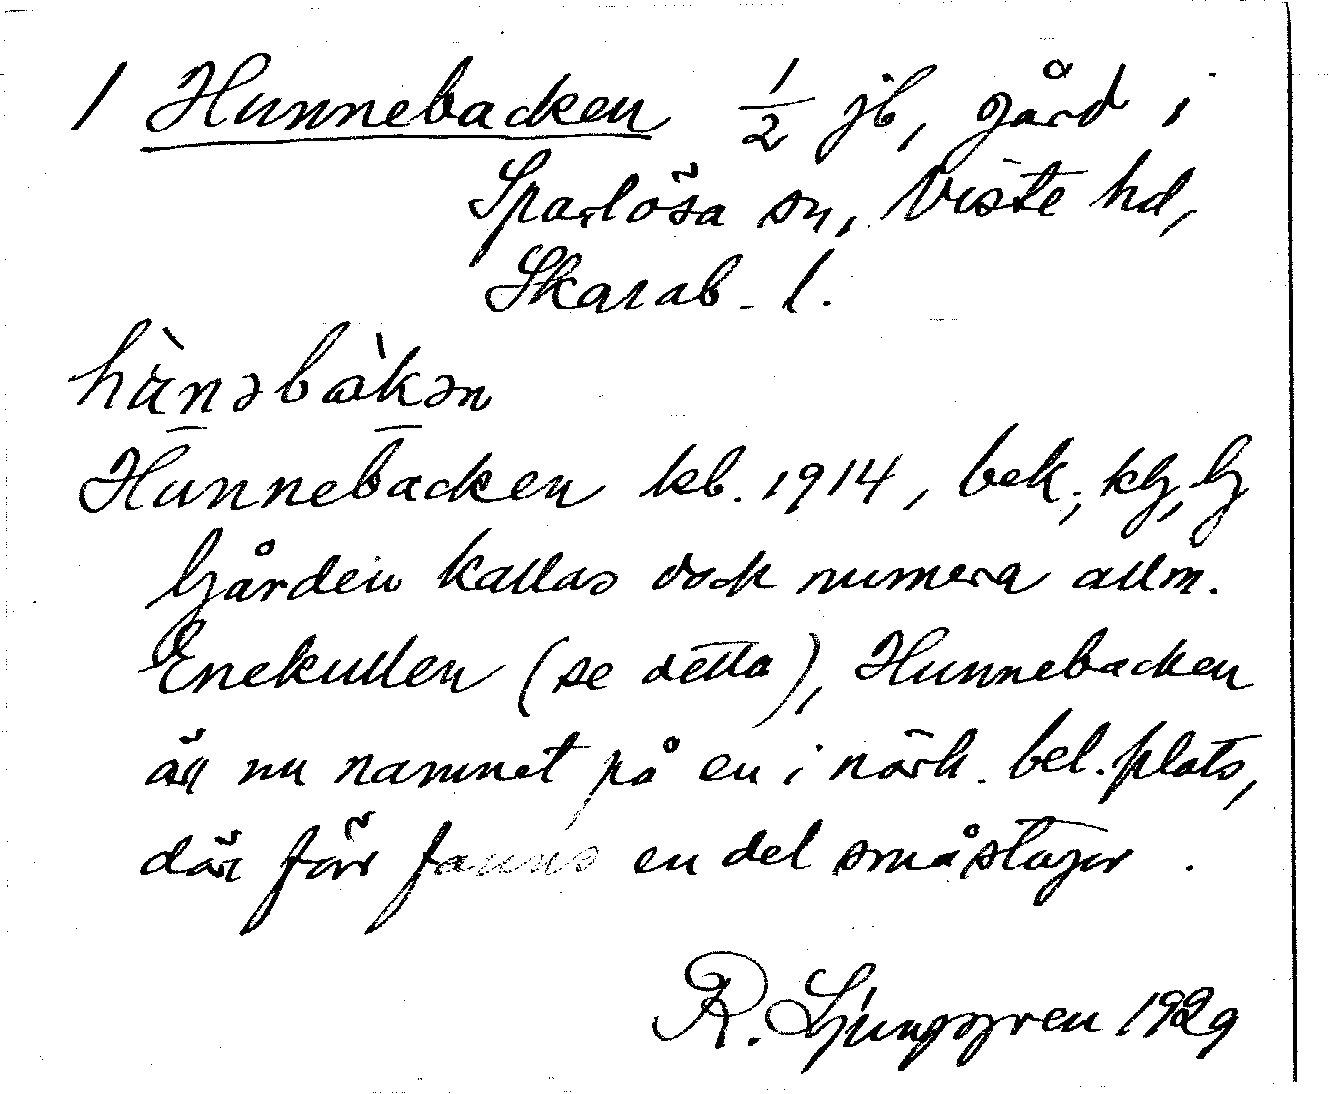 1 Hunnebacken 1/2 jb, gård i
Sparlösa sn, Viste hd,
Skarab. l.
hùnəbàkən
Hunnebacken kb. 1914, bek.,
Gården kallas dock numera allm.
Enekullen (se detta), Hunnebacken
är nu namnet på en i närh. bel. plats,
där förr fanns en del småstugor.
R. Ljunggren 1929